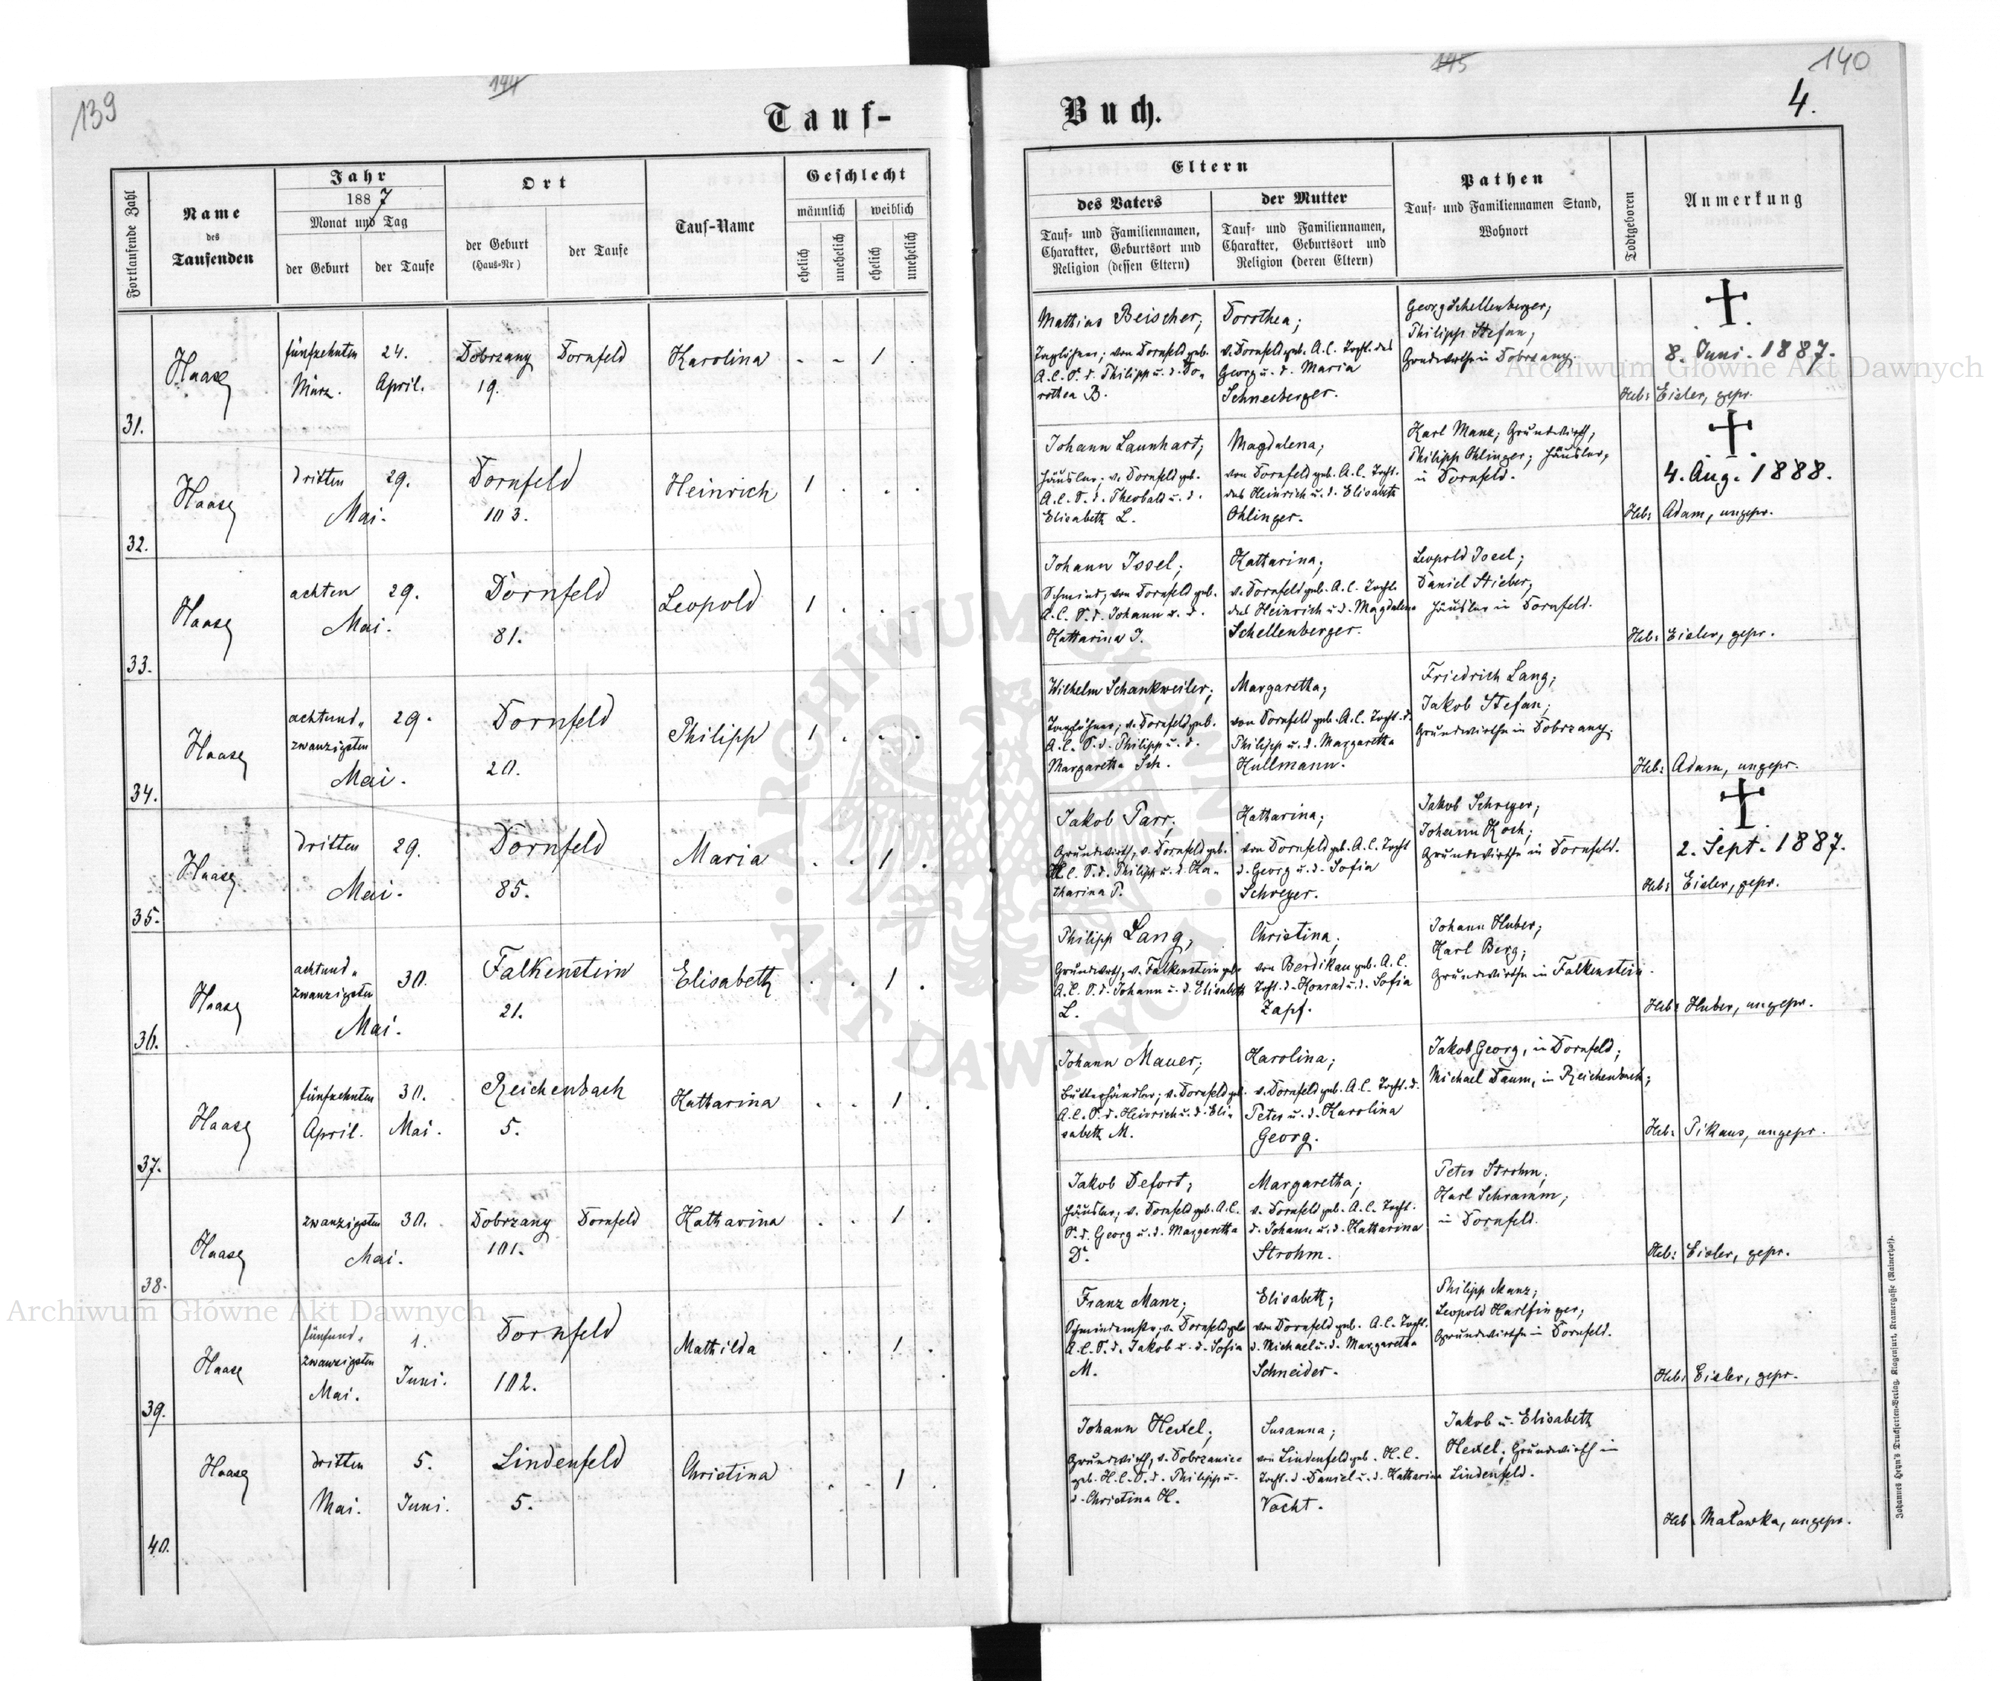 139
144
Tauf-
Fortlaufende Zahl
Name
des
Taufenden
Jahr
1887
Monat und Tag
der Geburt
der Taufe
Ort
der Geburt
(Haus-Nr)
der Taufe
Tauf-Name
Geschlecht
männlich
weiblich
ehelich
unehelich
ehelich
unehelich
31.
Haase
fünfzehnten
März.
24.
April.
Dobrzany
19.
Dornfeld
Karolina
- - 1 .
32.
Haase
dritten
29.
Mai.
Dornfeld
103.
Heinrich
1 . . .
33.
Haase
achten
29.
Mai.
Dornfeld
81.
Leopold
1 . . .
34.
Haase
achtund-
zwanzigsten
29.
Mai.
Dornfeld
20.
Philipp
1 . . .
35.
Haase
dritten
29.
Mai.
Dornfeld
85.
Maria
. . 1 .
36.
Haase
achtund-
zwanzigsten
30.
Mai.
Falkenstein
21.
Elisabeth
. . 1 .
37.
Haase
fünfzehnten
April.
30.
Mai.
Reichenbach
5.
Katharina
. . 1 .
38.
Haase
zwanzigsten
30.
Mai.
Dobrzany
101.
Dornfeld
Katharina
. . 1 .
39.
Haase
fünfund-
zwanzigsten
Mai.
1.
Juni.
Dornfeld
102.
Mathilda
. . 1 .
40.
Haase
dritten
Mai.
5.
Juni.
Lindenfeld
5.
Christina
. . 1 .
145
140
4.
Buch.
Eltern
des Vaters
der Mutter
Tauf- und Familiennamen,
Charakter, Geburtsort und
Religion (dessen Eltern)
Tauf- und Familiennamen,
Charakter, Geburtsort und
Religion (deren Eltern)
Pathen
Tauf- und Familiennamen Stand,
Wohnort
Todtgeboren
Anmerkung
Mathias Beischer;
Taglöhner; von Dornfeld geb.
A.C. S. d. Philipp u. d. Do-
rothea B.
Dorothea;
v. Dornfeld geb. A.C. Tocht. des
Georg u. d. Maria
Schneeberger.
Georg Schellenberger;
Philipp Stefan;
Grundwirthe in Dobrzany.
8. Juni. 1887.
Heb: Eisler, gepr.
Johann Launhart;
Häusler; v. Dornfeld geb.
A.C. S. d. Theobald u. d.
Elisabeth L.
Magdalena;
von Dornfeld geb. A.C. Tocht.
des Heinrich u. d. Elisabeth
Ohlinger.
Karl Manz, Grundwirth;
Philipp Ohlinger; Häusler,
in Dornfeld.
4. Aug. 1888.
Heb: Adam, ungepr.
Johann Issel;
Schmied, von Dornfeld geb.
A.C. S. d. Johann u. d.
Katharina I.
Katharina;
v. Dornfeld geb. A.C. Tocht.
des Heinrich u. d. Magdalena
Schellenberger.
Leopold Issel;
Daniel Stieber,
Häusler in Dornfeld.
Heb: Eisler, gepr.
Wilhelm Schankweiler;
Taglöhner; v. Dornfeld geb.
A.C. S. d. Philipp u. d.
Margaretha Sch.
Margaretha;
von Dornfeld geb. A.C. Tocht. d.
Philipp u. d. Margaretha
Hullmann.
Friedrich Lang;
Jakob Stefan;
Grundwirthe in Dobrzany.
Heb: Adam, ungepr.
Jakob Parr;
Grundwirth, v. Dornfeld geb.
H.C. S. d. Philipp u. d. Ka-
tharina P.
Katharina;
von Dornfeld geb. A.C. Tocht
d. Georg u. d. Sofia
Schreyer.
Jakob Schreyer;
Johann Koch;
Grundwirthe in Dornfeld.
2. Sept. 1887.
Heb: Eisler, gepr.
Philipp Lang;
Grundwirth, v. Falkenstein geb.
A.C. S. d. Johann u. d. Elisabeth
L.
Christina;
von Berdikau geb. A.C.
Tocht. d. Konrad u. d. Sofia
Zapf.
Johann Huber;
Karl Berg;
Grundwirthe in Falkenstein.
Heb: Huber, ungepr.
Johann Mauer;
Butterhändler; v. Dornfeld geb.
A.C. S. d. Heinrich u. d. Eli-
sabeth M.
Karolina;
v. Dornfeld geb. A.C. Tocht. d.
Peter u. d. Karolina
Georg.
Jakob Georg, in Dornfeld;
Michael Daum, in Reichenbach;
Heb: Pikaus, ungepr.
Jakob Defort;
Häusler; v. Dornfeld geb. A.C.
S. d. Georg u. d. Margaretha
D.
Margaretha;
v. Dornfeld geb. A.C. Tocht.
d. Johann u. d. Katharina
Strohm.
Peter Strohm;
Karl Schramm;
in Dornfeld.
Heb: Eisler, gepr.
Franz Manz;
Schmiedemstr, v. Dornfeld geb
A.C. S. d. Jakob u. d. Sofia
M.
Elisabeth;
von Dornfeld geb. A.C. Tocht.
d. Michael u. d. Margaretha
Schneider.
Philipp Manz;
Leopold Harlfinger;
Grundwirthe in Dornfeld.
Heb: Eisler, gepr.
Johann Hexel;
Grundwirth, v. Dobrzanice
geb. H.C. S. d. Philipp u.
d. Christina H.
Susanna;
von Lindenfeld geb. H.C.
Tocht. d. Daniel u. d. Katharina
Vocht.
Jakob u. Elisabeth
Hexel; Grundwirth in
Lindenfeld.
Heb: Maławka, ungepr.
Johannes Heyn's Drucksorten-Verlag, Klagenfurt, Kramergasse (Rainerhof).
Archiwum Główne Akt Dawnych
Archiwum Główne Akt Dawnych
ARCHIWUM GŁÓWNE AKT DAWNYCH